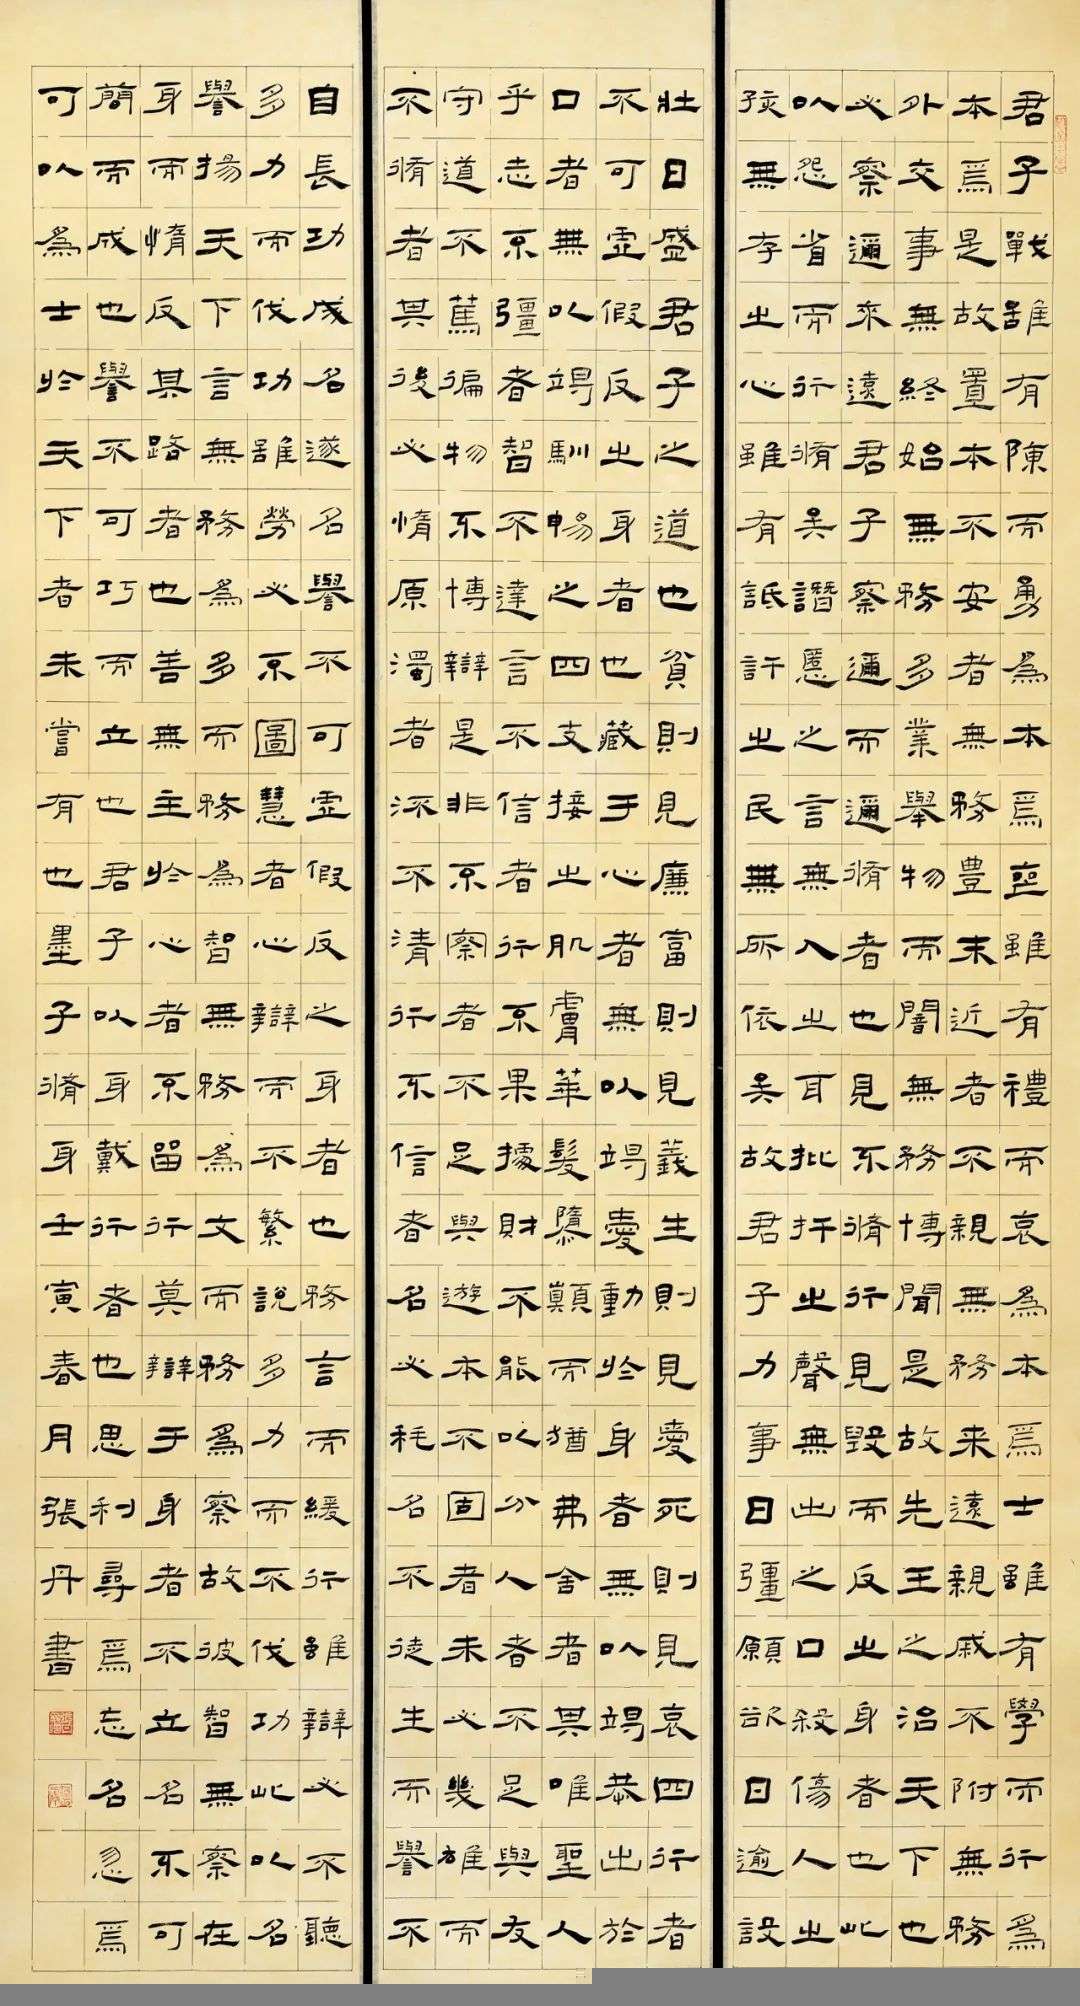 君子戰雖有陳而勇為本焉喪雖有禮而哀為本焉士雖有學而行為
本焉是故置本不安者無務豊末近者不親無務来遠親戚不附無務
外交事無終始無務多業舉物而闇無務博聞是故先王之治天下也
必察邇來遠君子察邇而邇脩者也見不脩行見毀而反之身者也此
以怨省而行脩矣譖慝之言無入之耳批扞之聲無出之口殺傷人之
孩無存之心雖有詆訐之民無所依矣故君子力事日彊願欲日逾設
壯日盛君子之道也貧則見廉富則見義生則見愛死則見哀四行者
不可虛假反之身者也藏于心者無以竭愛動於身者無以竭恭出於
口者無以竭馴暢之四支接之肌膚華髮隳顛而猶弗舍者其唯聖人
乎志不彊者智不達言不信者行不果據財不能以分人者不足與友
守道不篤徧物不博辯是非不察者不足與遊本不固者未必幾雄而
不脩者其後必惰原濁者流不清行不信者名必秏名不徒生而譽不
自長功成名遂名譽不可虛假反之身者也務言而緩行雖辯必不聽
多力而伐功雖勞必不圖慧者心辯而不繁說多力而不伐功此以名
譽揚天下言無務為多而務為智無務為文而務為察故彼智無察在
身而惰反其路者也善無主於心者不留行莫辯于身者不立名不可
簡而成也譽不可巧而立也君子以身戴行者也思利尋焉忘名忽焉
可以為士於天下者未嘗有也墨子脩身壬寅春月張丹書